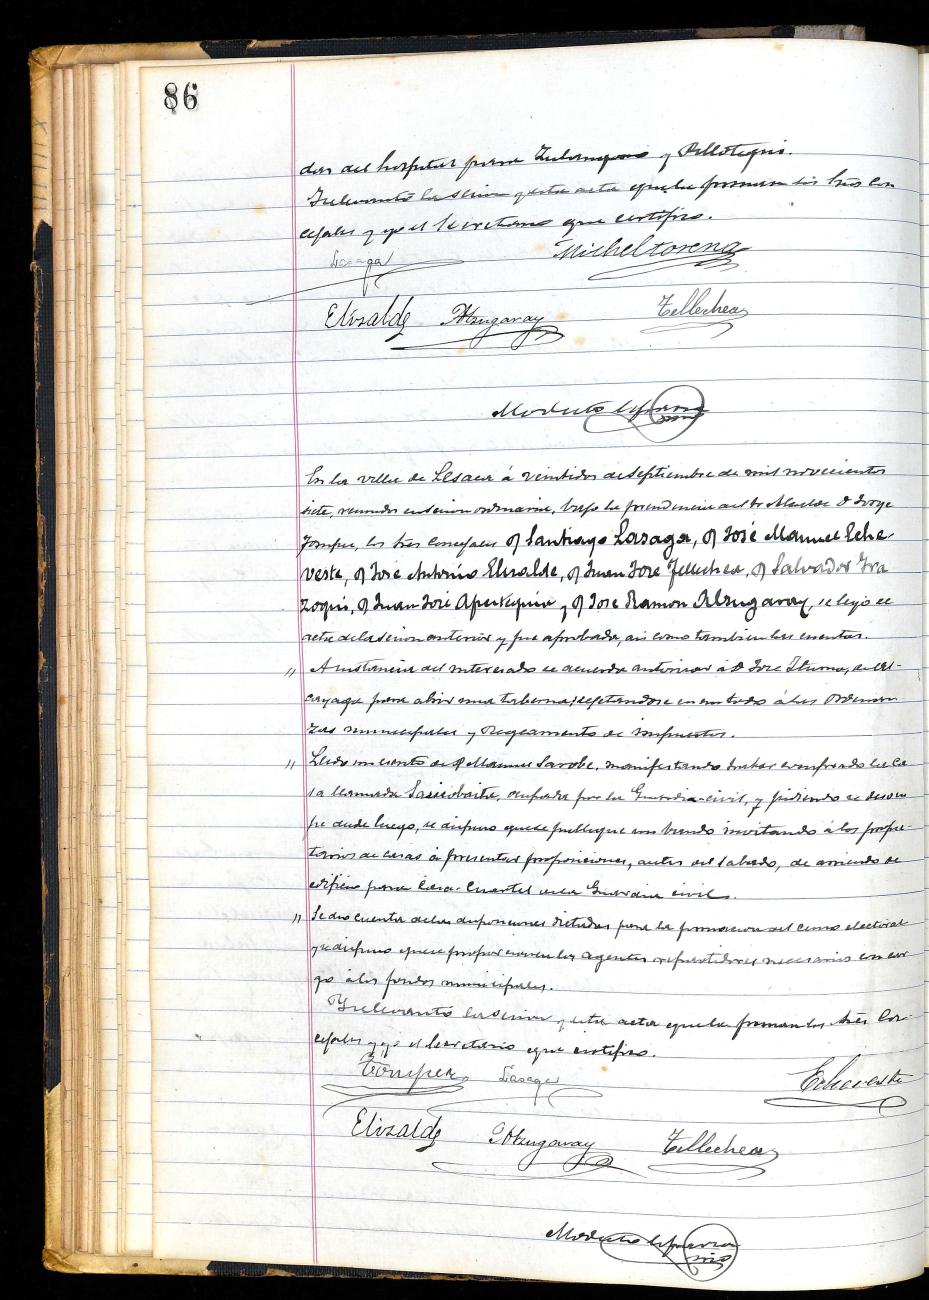 86
das del hospital para Zulaugaro y Pellotegui.
Y se levantó la sesion y esta acta que la firman los Sres Con
cejales y yo el Secretario que certifico.
Lasaga Micheltorena
Elizalde Alzugaray Tellechea
Modesto
En la villa de Lesaca á veintidos de Septiembre de mil novecientos
siete, reunidos en sesion ordinaria, bajo la presidencia del Sr Alcalde D Jorge
los Sres Concejales D Santiago Lasaga, D José Manuel Eche-
veste, D José Antonio Elizalde, D Juan José Tellechea, D Salvador Ira
zoqui, D Juan José Apeztequia y D José Ramon Alzugaray, se leyó el
acta de la sesion anterior y fue aprobada, asi como tambien las cuentas.
" A instancia del interesado se acuerda autorizar á D José de Al-
cayaga para abrir una taberna, sujetandose en un todo á las Ordenan
zas municipales y Reglamento de impuestos.
" Leido un escrito de D Manuel Sarobe, manifestando haber comprado la Ca
sa llamada ocupada por la Guardia-civil, y pidiendo se desocu
pe desde luego, se dispuso que se publique un bando invitando á los propie-
tarios de casas á presentar proposiciones, antes del Sabado, de arriendo de
edificio para Casa-Cuartel de la Guardia civil.
" Se dio cuenta de las disposiciones dictadas para la formacion del censo electoral
y se dispuso que se proporcionen los agentes repartidores necesarios con car
go á los fondos municipales.
Y se levantó la sesion y esta acta que la firman los Sres Con-
cejales y yo el Secretario que certifico.
Lasaga Echeveste
Elizalde Alzugaray Tellechea
Modesto